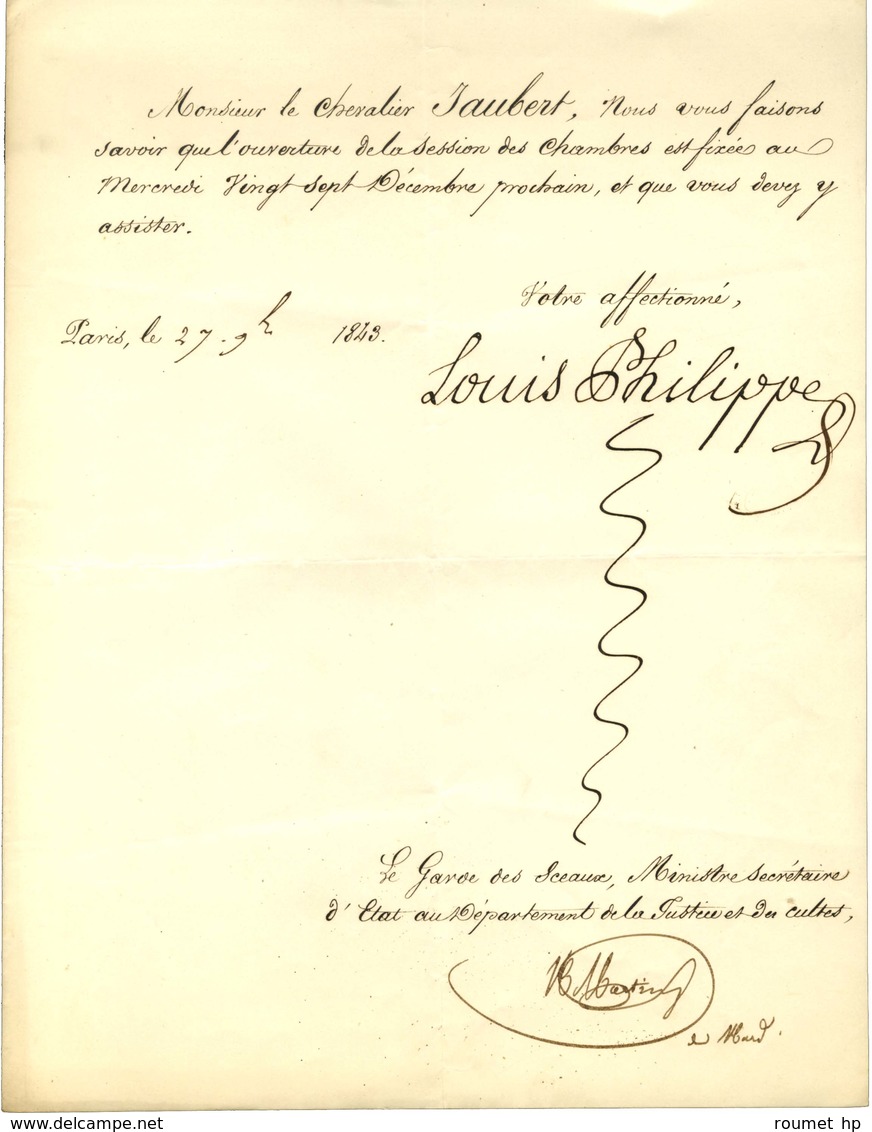 Monsieur le Chevalier Jaubert, Nous vous faisons
savoir que l'ouverture de la Session des Chambres est fixée au
Mercredi Vingt sept Décembre prochain, et que vous devez y
assister.
Votre affectionné,
Paris, le 27. 9h 1843.
Louis Philippe
Le Garde des Sceaux, Ministre Secrétaire
d'Etat au Département de la Justice et des cultes,
Martin
du Nord.
delcampe.net
roumet hp